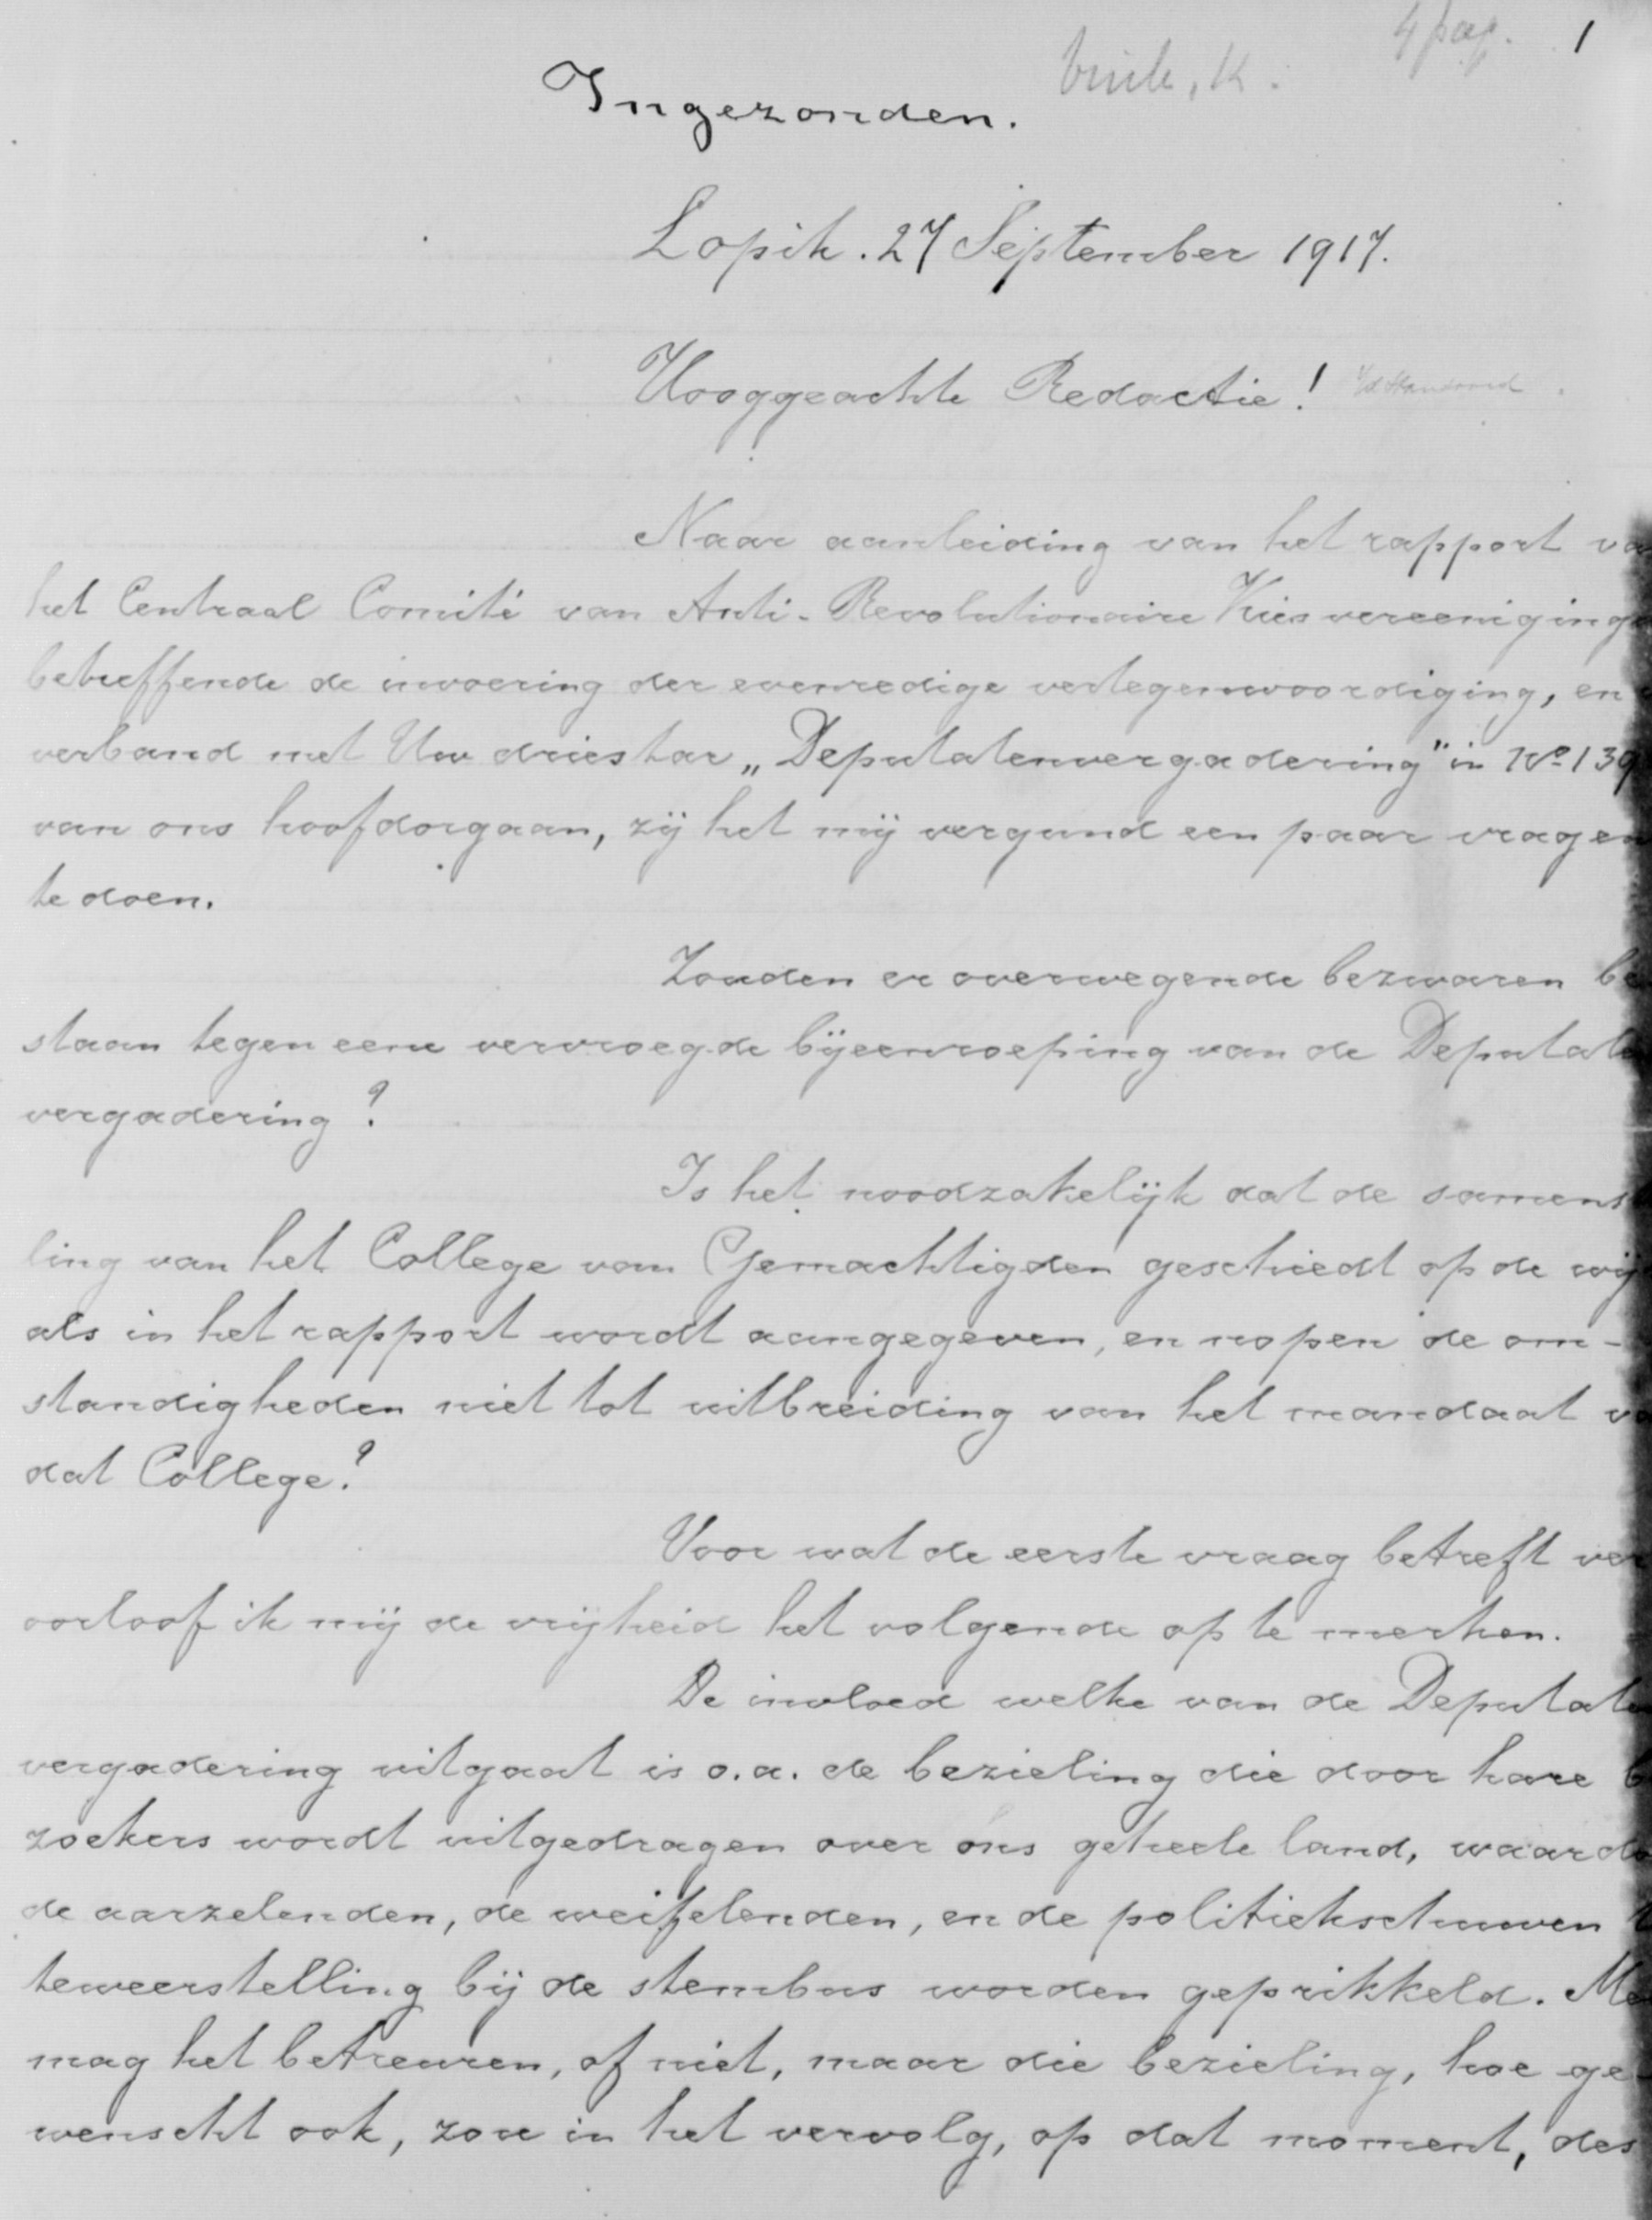 4 pag. 1
Ingezonden.
Lopik. 27 September 1917.
Hooggeachte Redactie! v/d Standaard
Naar aanleiding van het rapport va
het Centraal Comité van Anti-Revolutionaire Kiesvereeniginge
betreffende de invoering der evenredige vertegenwoordiging, en
verband met Uw driestar „Deputatenvergadering" in No 139
van ons hoofdorgaan, zij het mij vergund een paar vragen
te doen.
Zouden er overwegende bezwaren be
staan tegen eene vervroegde bijeenroeping van de Deputate
vergadering?
Is het noodzakelijk dat de samenst
ling van het College van Gemachtigden geschiedt op de wij
als in het rapport wordt aangegeven, en nopen de om-
standigheden niet tot uitbreiding van het mandaat va
dat College?
Voor wat de eerste vraag betreft ver
oorloof ik mij de vrijheid het volgende op te merken.
De invloed welke van de Deputate
vergadering uitgaat is o.a. de bezieling die door hare b
zoekers wordt uitgedragen over ons geheele land, waardo
de aarzelenden, de weifelenden, en de politiekschuwen t
teweerstelling bij de stembus worden geprikkeld. Me
mag het betreuren, of niet, maar die bezieling, hoe ge-
wenscht ook, zou in het vervolg, op dat moment, des